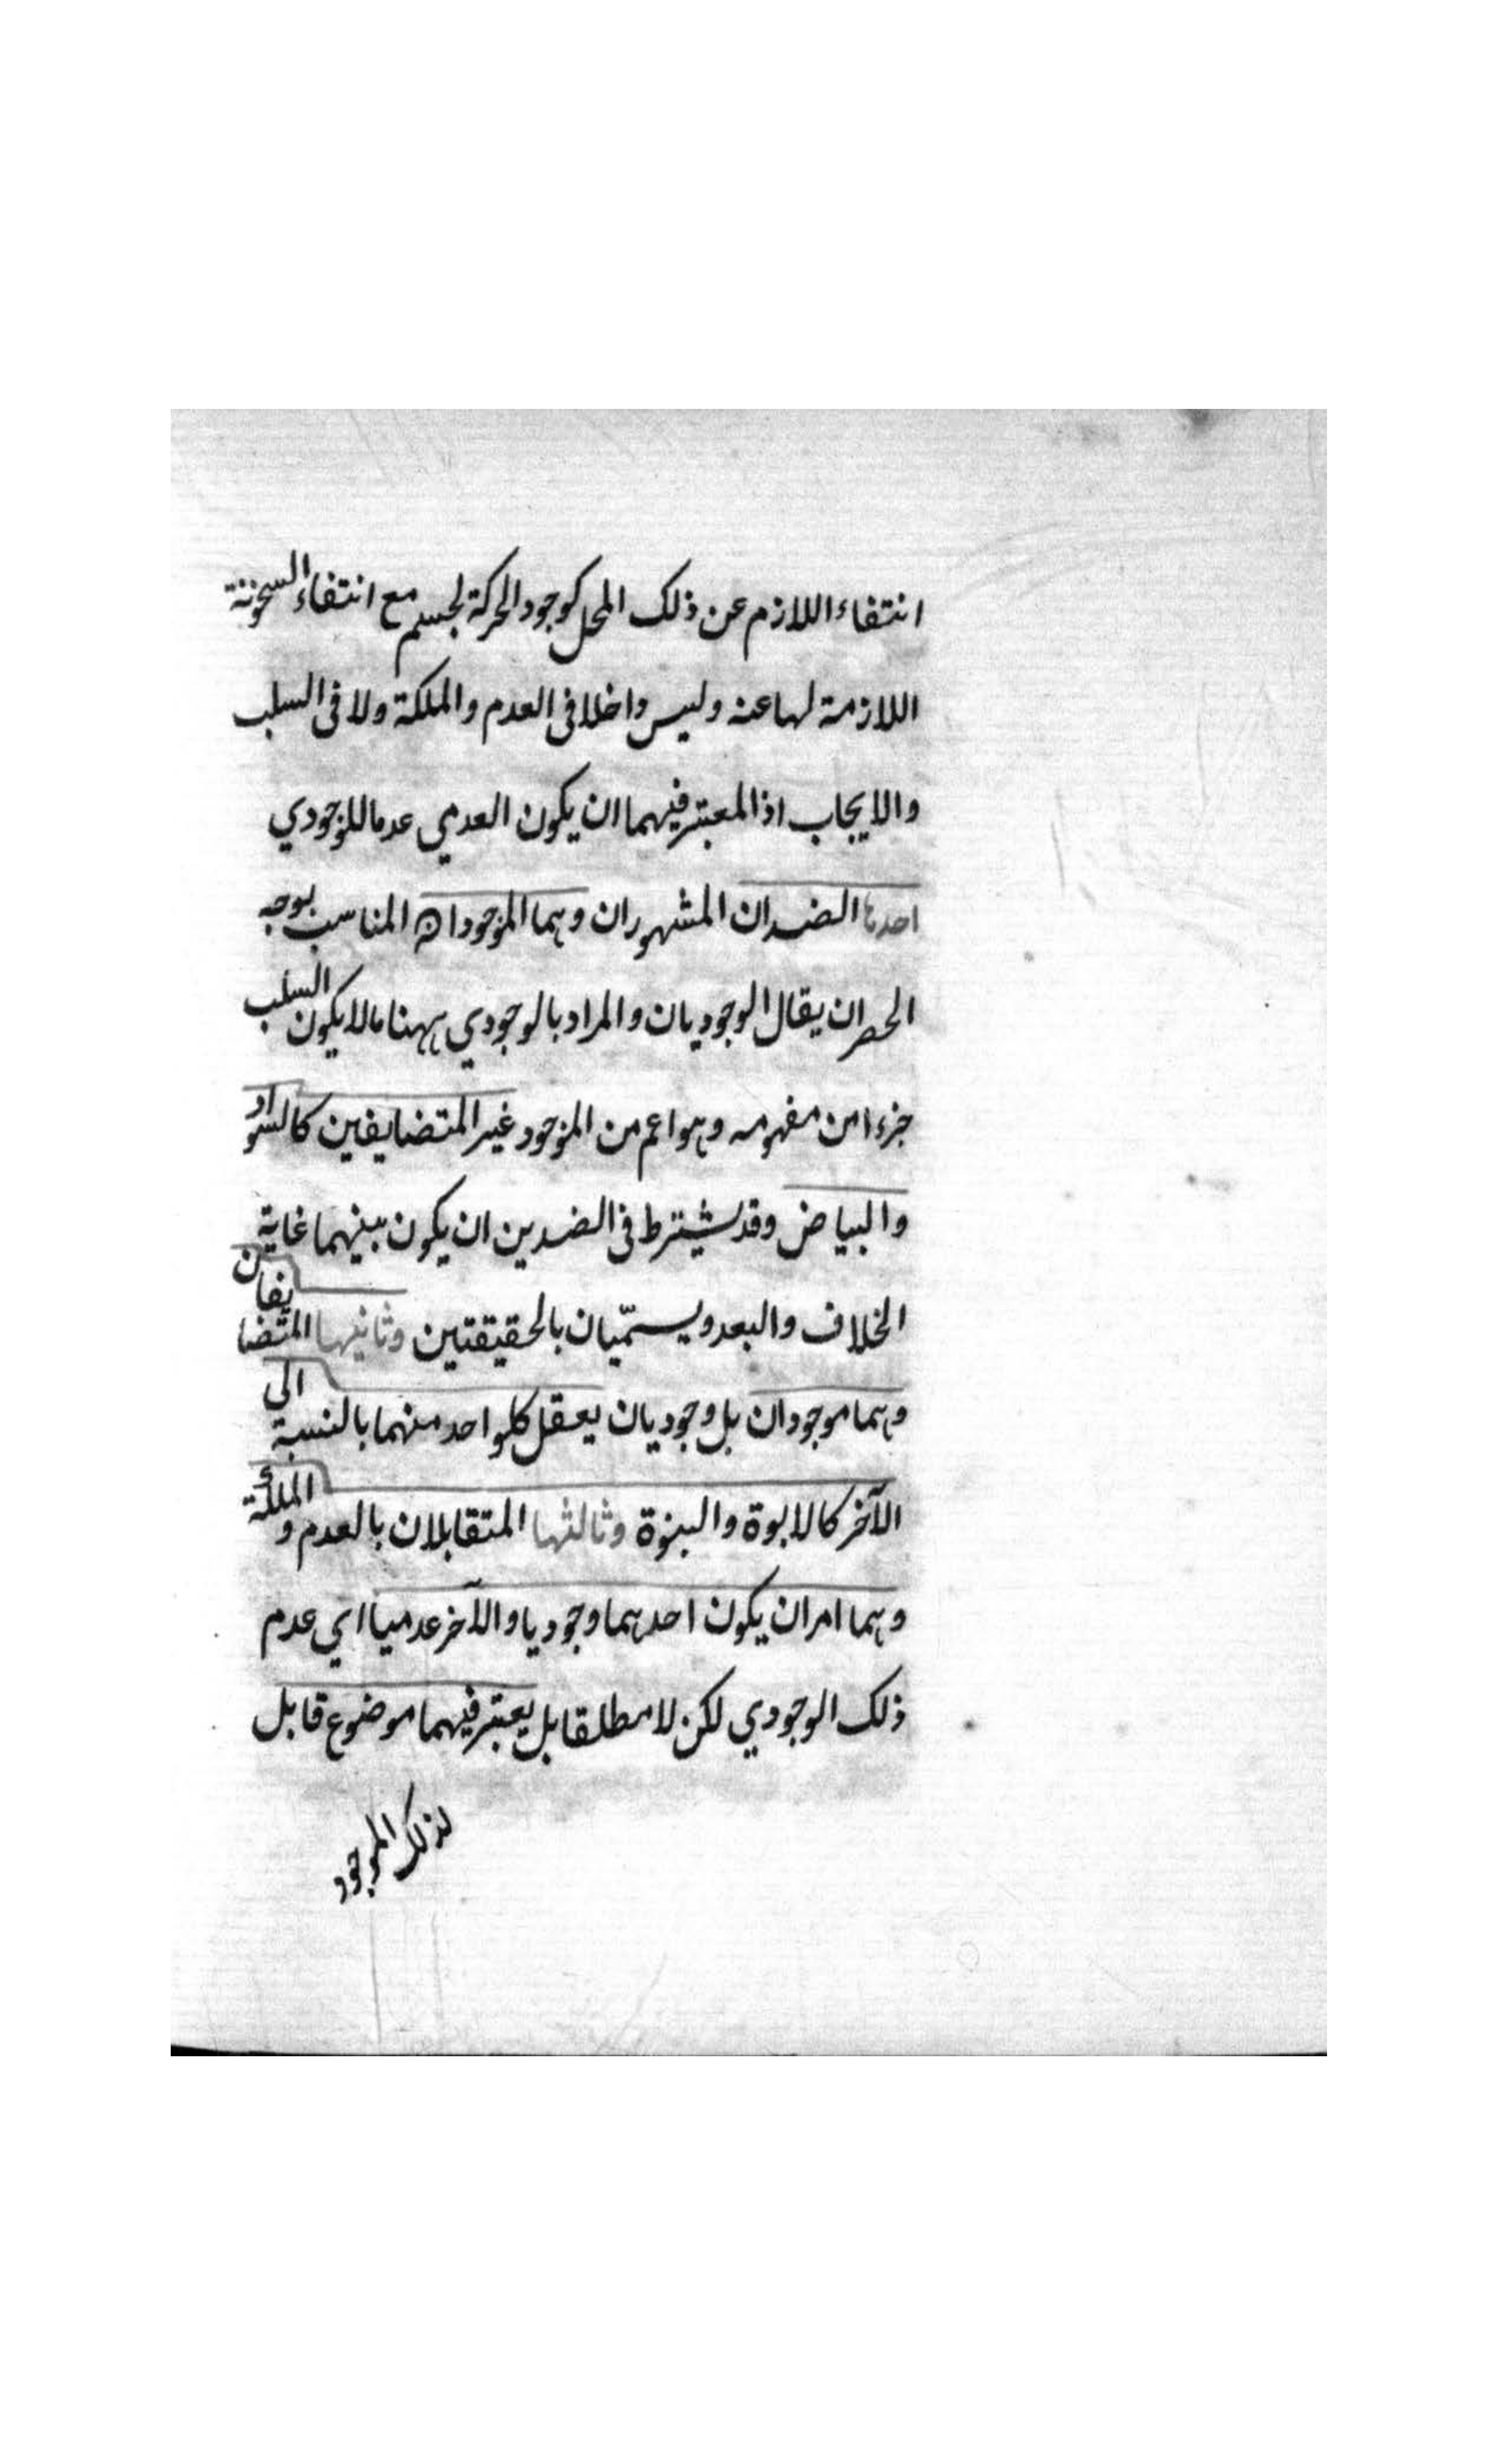 انتفاء اللازم عن ذلك المحل كوجود الحركة لجسم مع انتفاء السخونة
اللازمة لها عنه وليس داخلا فى العدم والملكة ولا فى السلب
والايجاب اذ المعتبر فيهما ان يكون العدمي عدما للوجودي
احدها الضدان المشهوران وهما الموجودان المناسب بوجه
الحصر ان يقال الوجوديان والمراد بالوجودي ههنا ما لا يكون السلب
جزءا من مفهومه وهو اعم من الموجود غير المتضايفين كالسواد
والبياض وقد يشترط فى الضدين ان يكون بينهما غاية
الخلاف والبعد ويسمّيان بالحقيقتين وثانيها المتضايفان
وهما موجودان بل وجوديان يعقل كلواحد منهما بالنسبة الى
الآخر كالابوة والبنوة وثالثها المتقابلان بالعدم والملكة
وهما امران يكون احدهما وجوديا والآخر عدميا اي عدم
ذلك الوجودي لكن لا مطلقا بل يعتبر فيهما موضوع قابل
لذلك الموجود